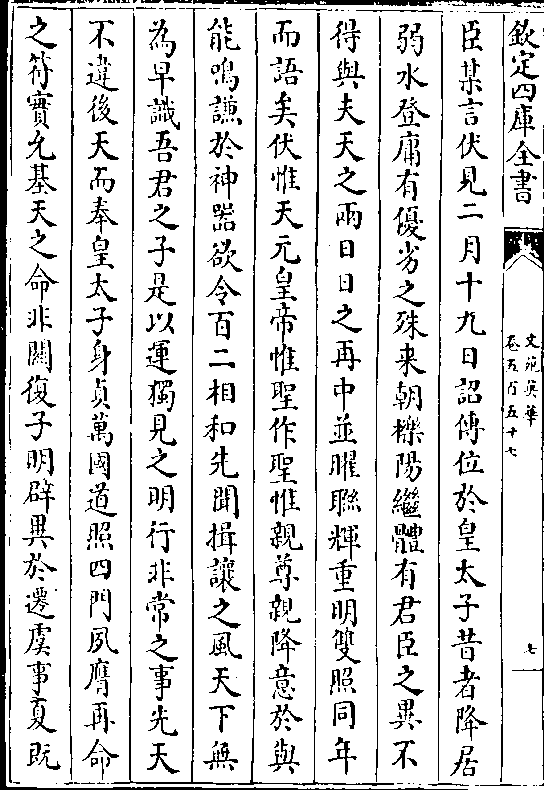 欽定四庫全書
文苑英華
卷五百五十七
七
臣某言伏見二月十九日詔傳位於皇太子昔者降居
弱水登庸有優劣之殊来朝櫟陽繼體有君臣之異不
得與夫天之兩日日之再中並曜聯輝重明雙照同年
而語矣伏惟天元皇帝惟聖作聖惟親尊親降意於與
能鳴謙於神器欲令百二相和先聞揖讓之風天下無
為早識吾君之子是以運獨見之明行非常之事先天
不違後天而奉皇太子身貞萬國道照四門夙膺再命
之符實允基天之命非關復子明辟異於遷虞事夏既